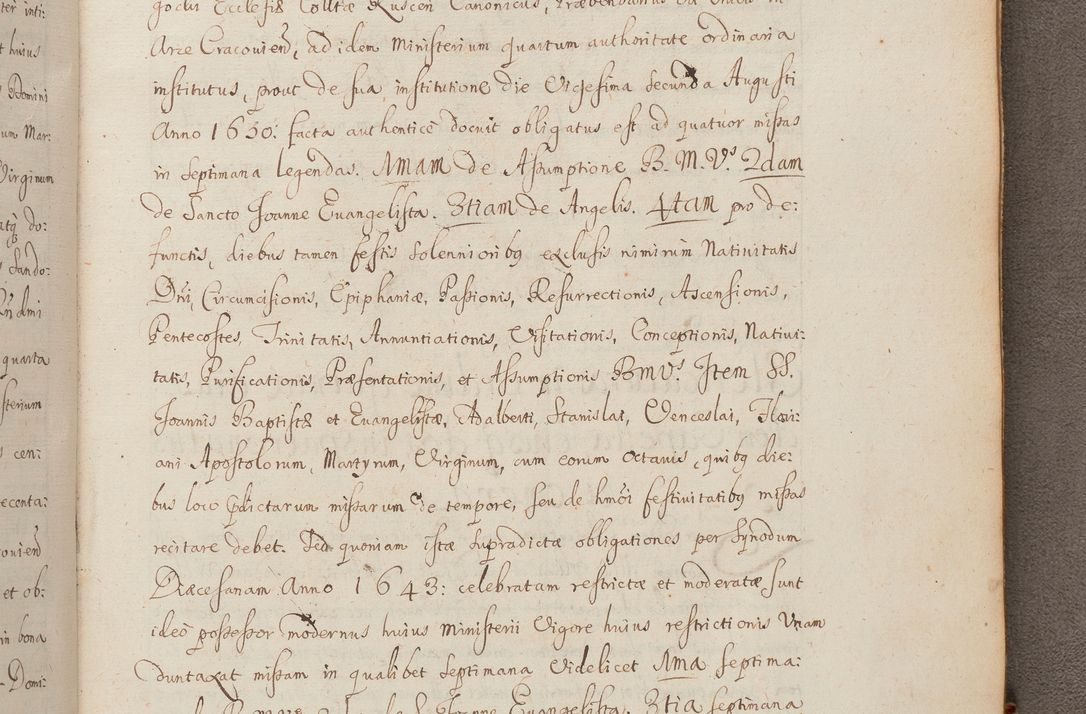 ter inti:
t huius
Domini
um Mar:
Virginum
atq̃ do:
Sando:
quarta
sterium
cen:
ecenta:
ouien̄
et ob:
in bona
Domi:
Ecclesiæ Colltæ Canonicus, Præbendarius
Arce Cracouien̄, ad idem Ministerium quartum authoritate ordinaria
institutus, prout de sua institutione die Vigesima Secunda Augusti
Anno 1630: facta authenticè docuit obligatus est ad quatuor missas
in septimana legendas. 1mam de Assumptione B. M. V.s 2dam
de Sancto Joanne Euangelista. 3tiam de Angelis. 4tam pro de:
functis, diebus tamen festis solennioribq exclusis nimirum Natiuitatis
Dn̄i, Circumcisionis, Epiphaniæ, Passionis, Resurrectionis, Ascensionis,
Pentecostes, Trinitatis, Annuntiationis, Visitationis, Conceptionis, Natiui:
tatis, Purificationis, Præsentationis, et Assumptionis BMV.s Item SS.
Joannis Baptistæ et Euangelistæ, Adalberti, Stanislai, Venceslai, Flori:
ani Apostolorum, Martyrum, Virginum, cum eorum Octauis, quibq die:
bus loco p̄dictarum missarum de tempore, seu de hmōi festiuitatibq missas
recitare debet. Sed quoniam istæ supradictæ obligationes per Synodum
Diæcesanam Anno 1643: celebratam restrictæ et moderatæ sunt
ideò possessor modernus huius Ministerii Vigore huius restrictionis Vnam
duntaxat missam in qualibet septimana Videlicet 1ma septima:
Euangelista. 3tia septimana